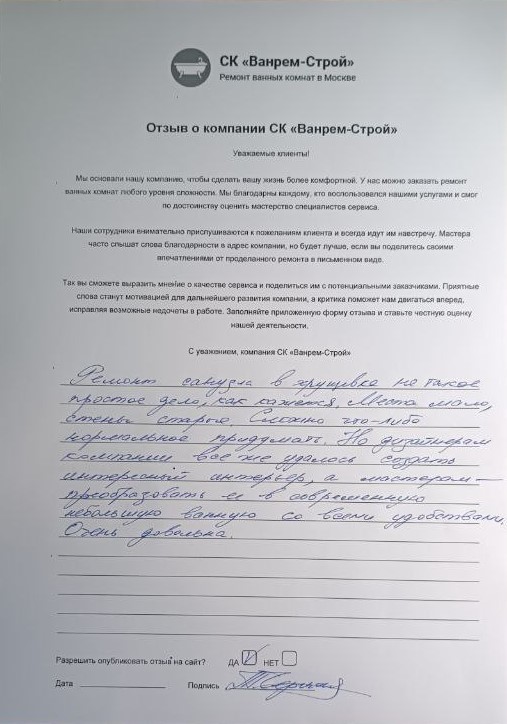 СК «Ванрем-Строй»
Ремонт ванных комнат в Москве
Отзыв о компании СК «Ванрем-Строй»
Уважаемые клиенты!
Мы основали нашу компанию, чтобы сделать вашу жизнь более комфортной. У нас можно заказать ремонт
ванных комнат любого уровня сложности. Мы благодарны каждому, кто воспользовался нашими услугами и смог
по достоинству оценить мастерство специалистов сервиса.
Наши сотрудники внимательно прислушиваются к пожеланиям клиента и всегда идут им навстречу. Мастера
часто слышат слова благодарности в адрес компании, но будет лучше, если вы поделитесь своими
впечатлениями от проделанного ремонта в письменном виде.
Так вы сможете выразить мнение о качестве сервиса и поделиться им с потенциальными заказчиками. Приятные
слова станут мотивацией для дальнейшего развития компании, а критика поможет нам двигаться вперед,
исправляя возможные недочеты в работе. Заполняйте приложенную форму отзыва и ставьте честную оценку
нашей деятельности.
С уважением, компания СК «Ванрем-Строй»
Ремонт санузла в хрущевке не такое
простое дело, как кажется. Места мало,
стены старые. Сложно что-либо
нормальное придумать. Но дизайнерам
компании все же удалось создать
интересный интерьер, а мастерам –
преобразовать ее в современную
небольшую ванную со всеми удобствами.
Очень довольна.
Разрешить опубликовать отзыв на сайт? ДА НЕТ
Дата Подпись